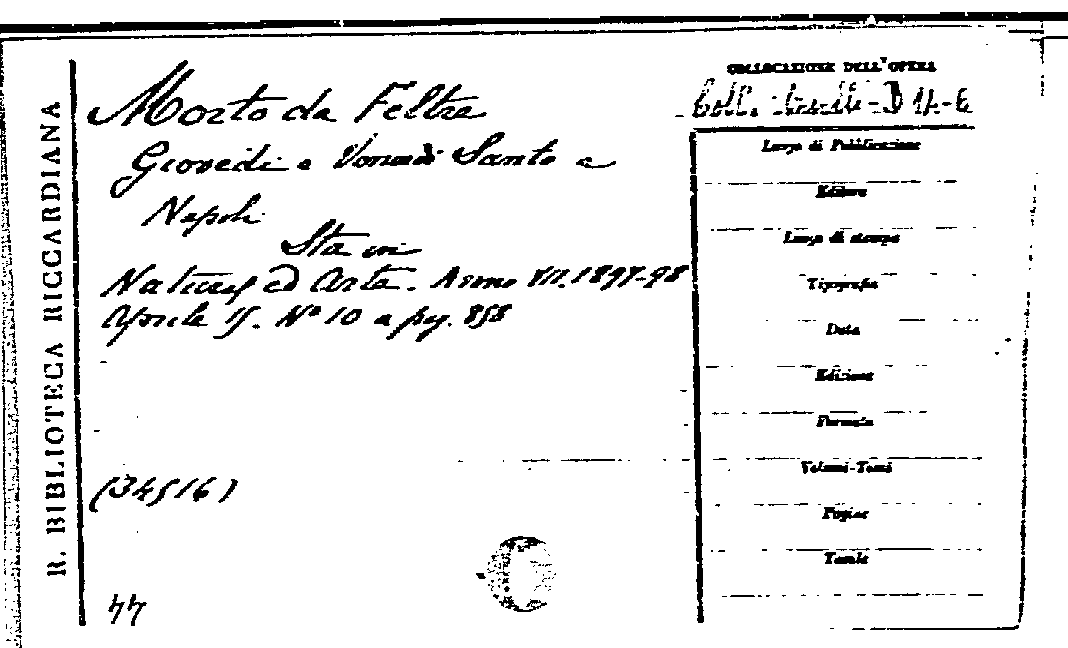 R. BIBLIOTECA RICCARDIANA
Morto da Feltre
Giovedi e Venerdi Santo a
Napoli
Sta in
Natura ed Arte. Anno VII. 1897-98
Aprile 15. Nº 10 a pag. 858
(34516)
44
COLLOCAZIONE DELL'OPERA
Coll.
Luogo di Pubblicazione
Editore
Luogo di stampa
Tipografia
Data
Edizione
Formato
Volumi-Tomi
Pagine
Tavole